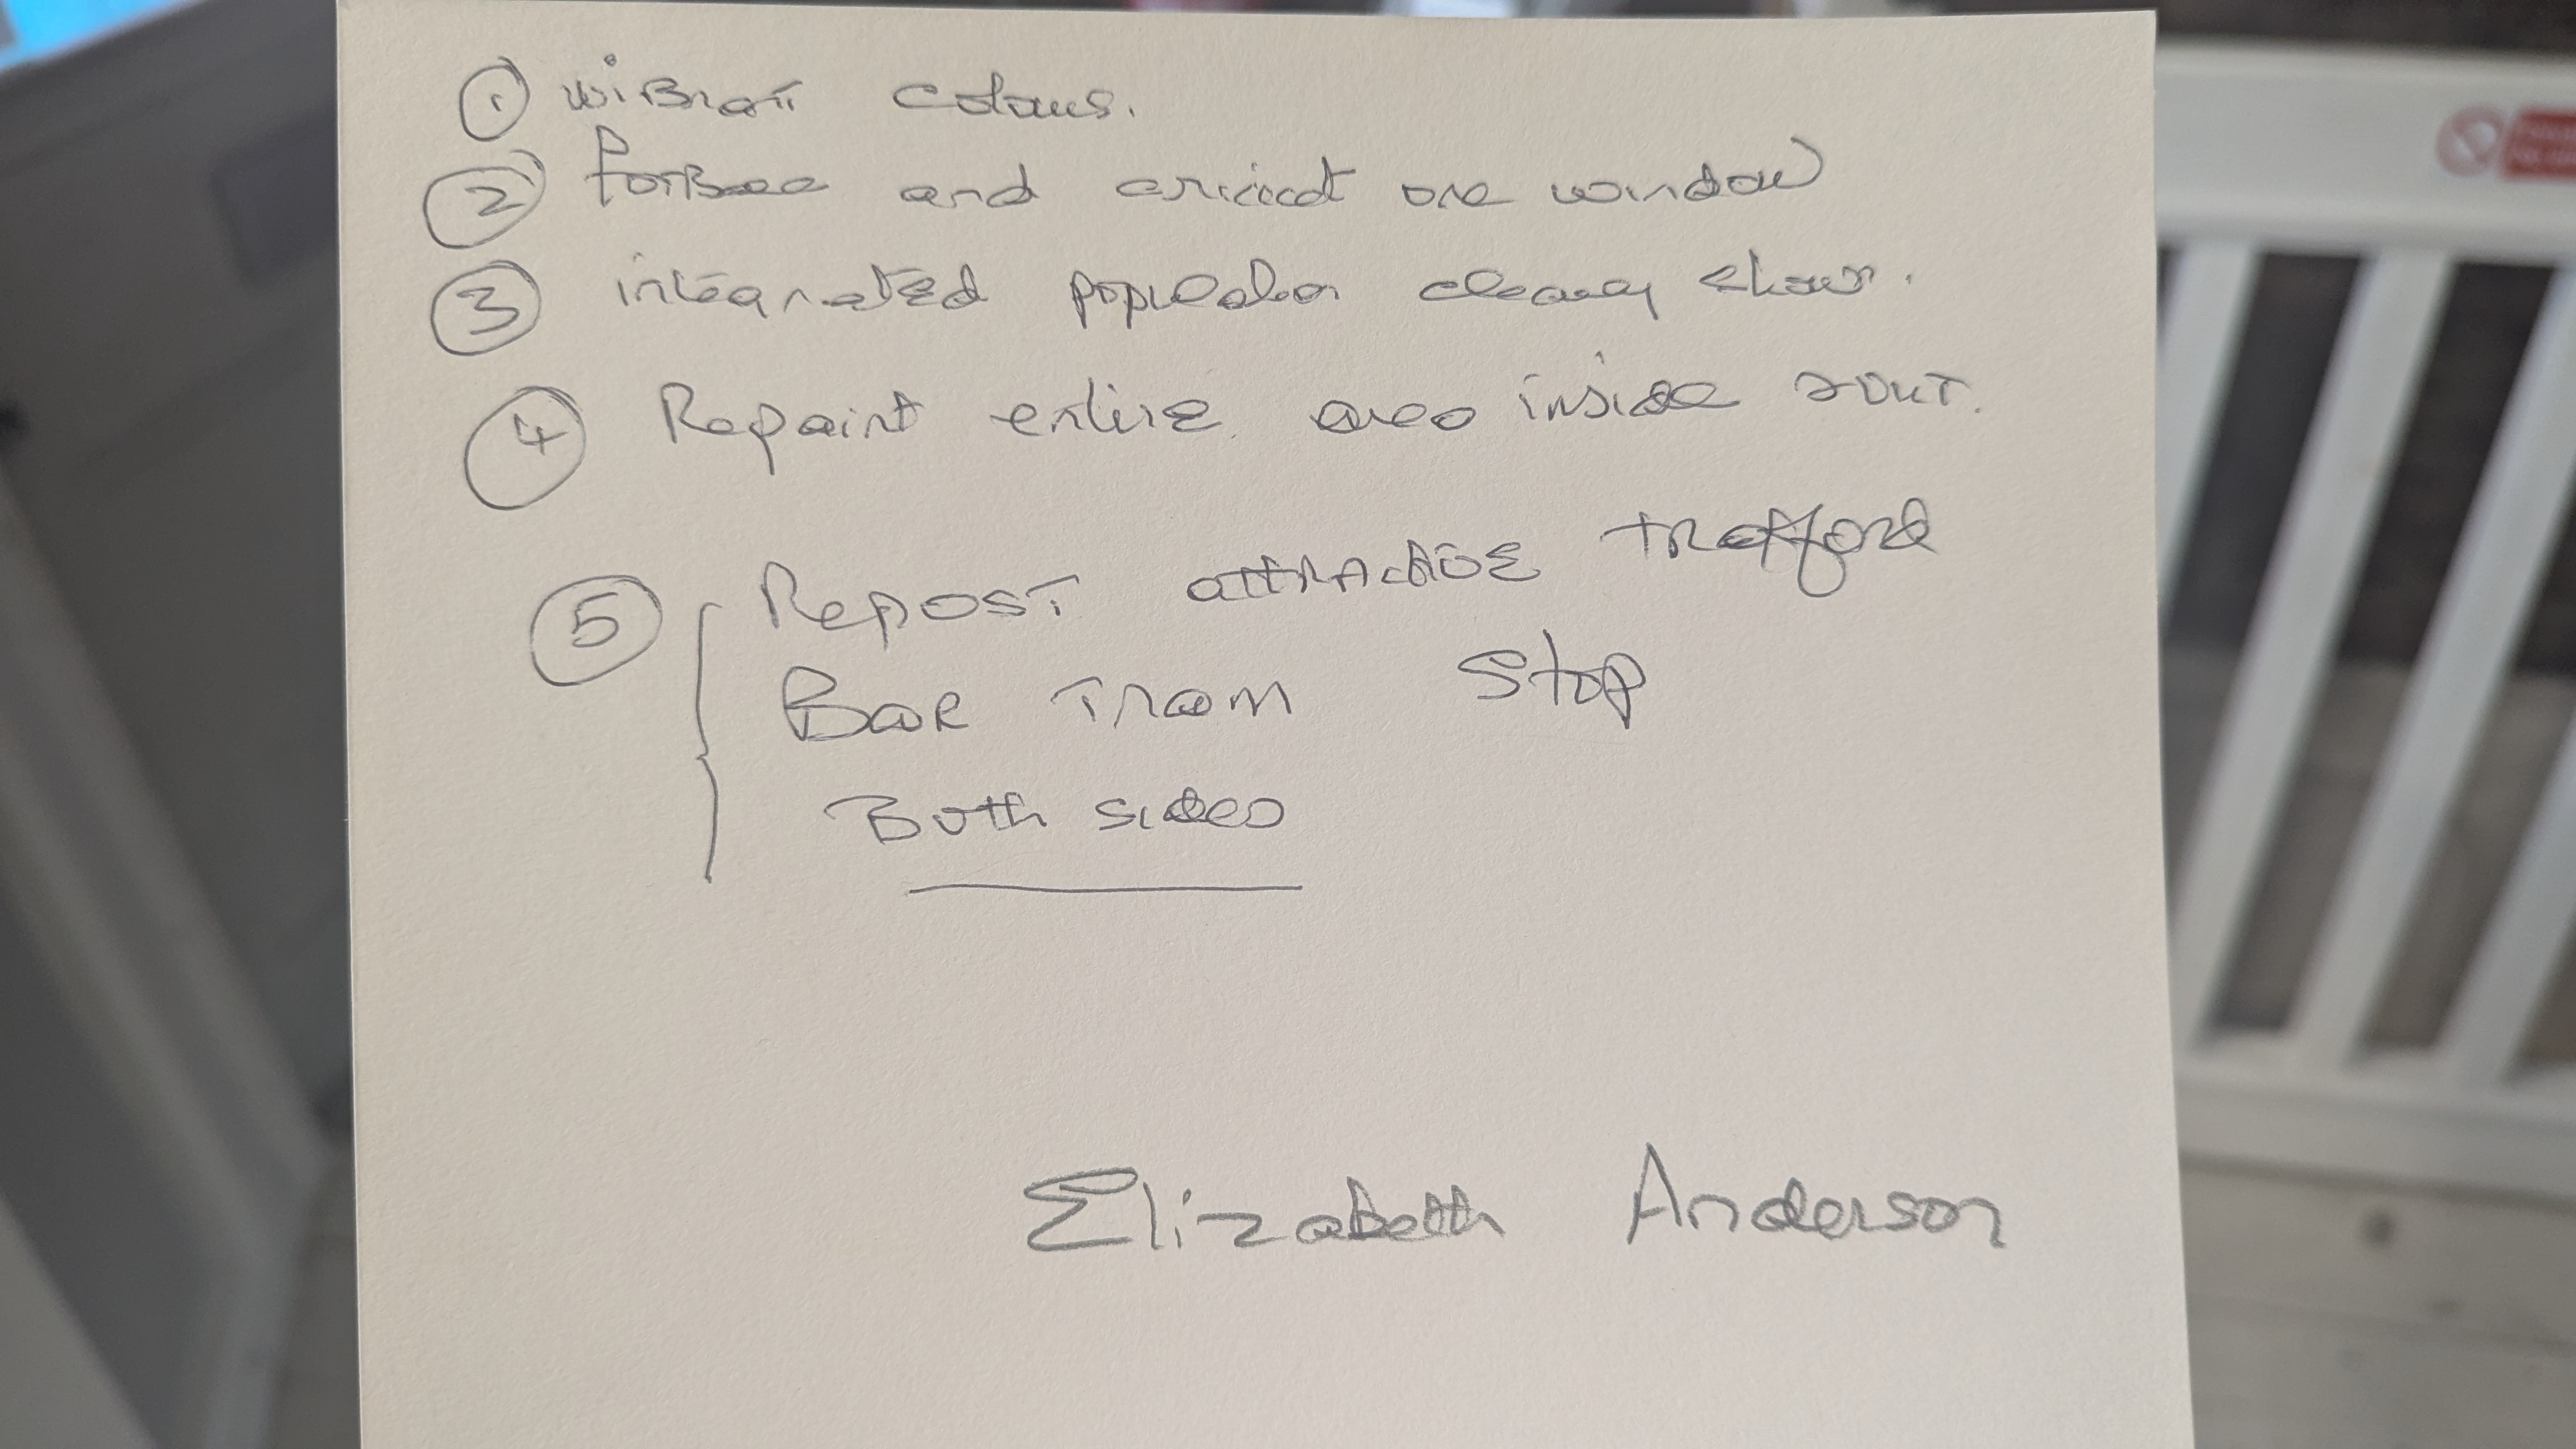 ① vibrant colours.
② Football and cricket one window
③ integrated population clearly shown.
④ Repaint entire area inside & out.
⑤ Repost attractive Trafford
Bar Tram Stop
Both sides
Elizabeth Anderson